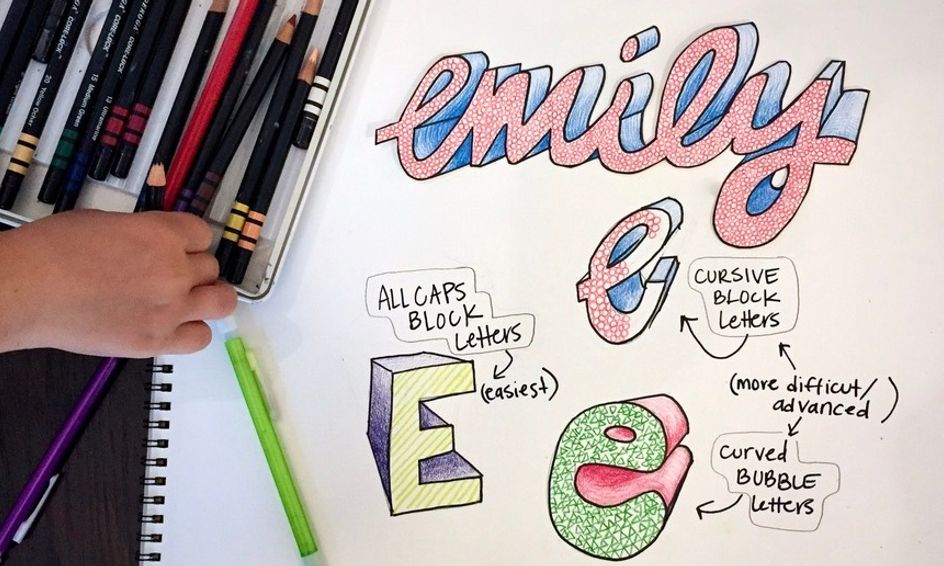 emily
e
CURSIVE
BLOCK
letters
ALL CAPS
BLOCK
letters
(easiest)
E
(more difficut/
advanced)
e
curved
BUBBLE
letters
20 Yellow Ochre
15 Medium Green
13 Ultramarine
DEROGA CORE-LOCK™
CORE-LOCK™